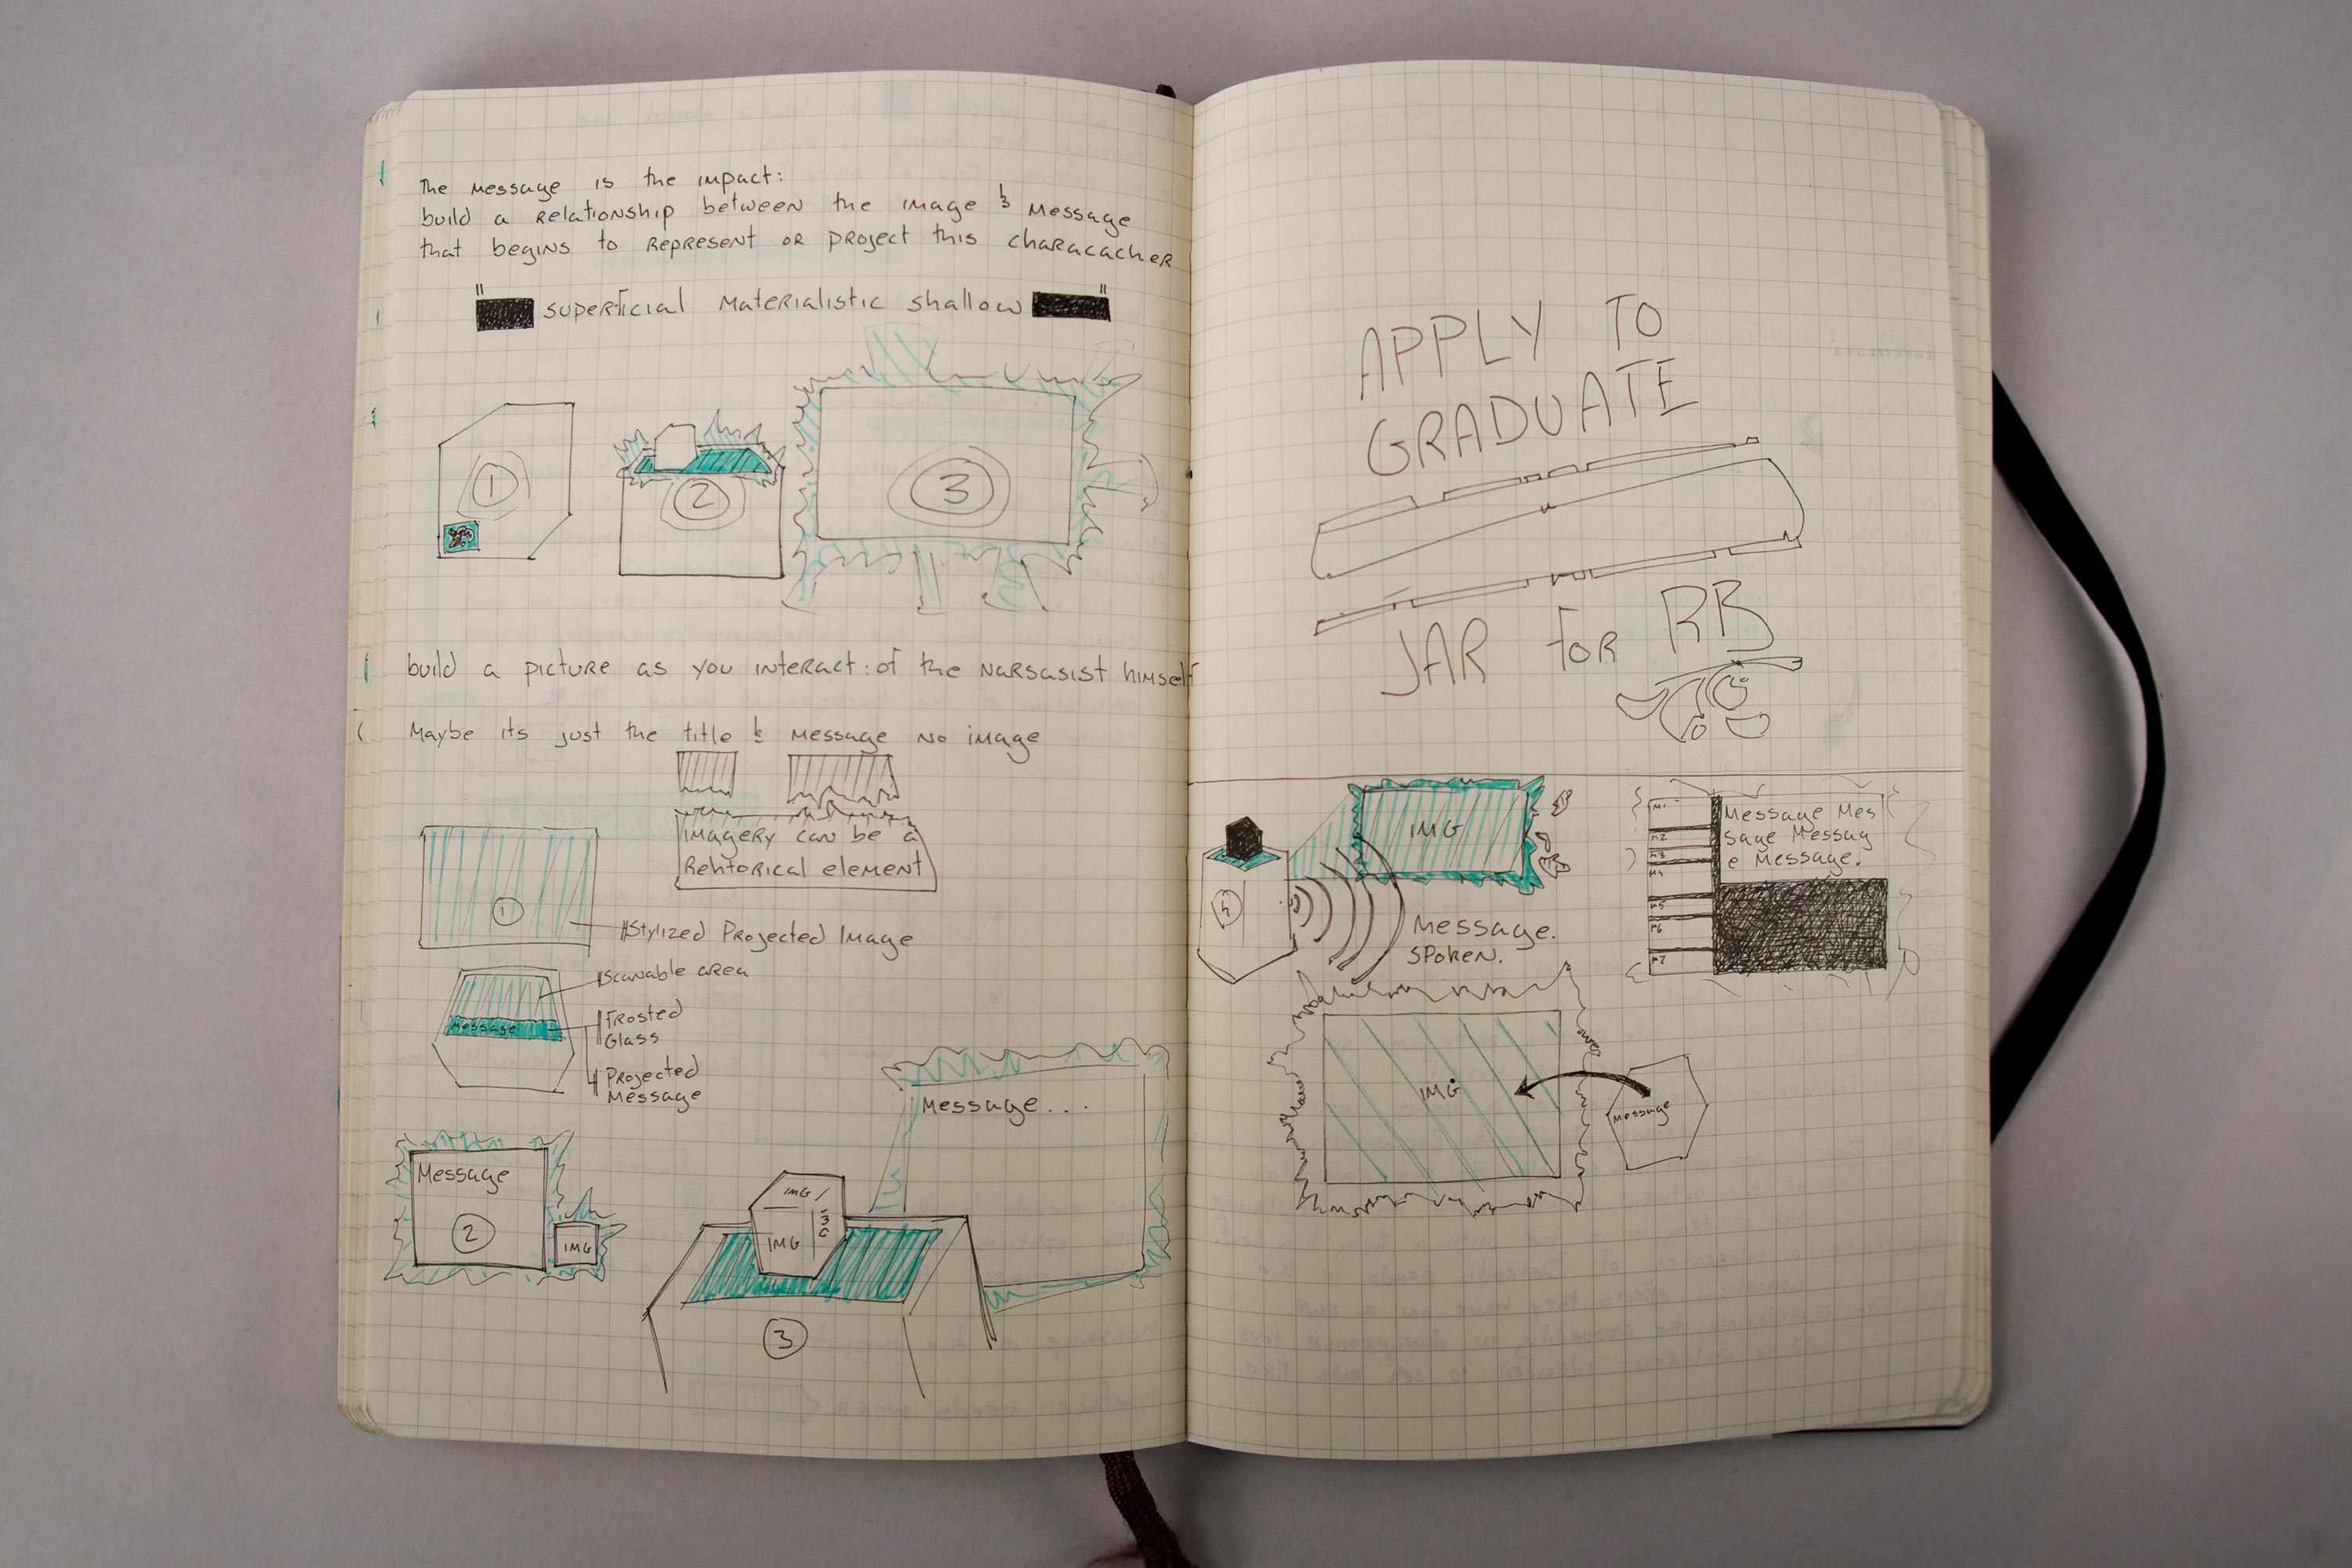 The Message is the impact:
build a Relationship between the image & Message
that begins to Represent or project this characacher
"superficial Materialistic shallow"
1
2
3
build a picture as you interact: of the Narsasist himself
Maybe its just the title & Message no image
imagery can be a
Rehtorical element
1
Stylized Projected Image
Scanable area
Message
Frosted
Glass
Projected
Message
Message...
Message
2
IMG
IMG /
IMG
3
APPLY TO
GRADUATE
JAR for RB
IMG
Message.
Spoken.
M1
M2
M3
M4
M5
M6
M7
Message Mes
sage Messag
e Message.
IMG
Message